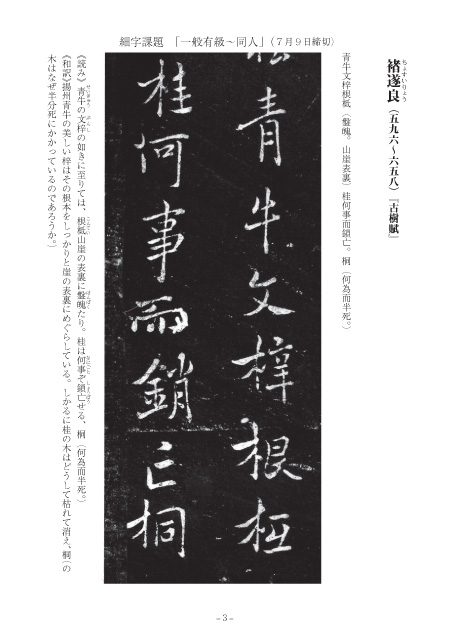 細字課題 「一般有級～同人」（７月９日締切）
褚遂良（五九六～六五八）『古樹賦』
ちょすいりょう
青牛文梓根柢（盤魄。山崖表裏）桂何事而銷亡。桐（何為而半死。）
青牛文梓根柢
桂何事而銷亡桐
《読み》青牛の文梓の如きに至りては、根柢山崖の表裏に盤魄たり。桂は何事ぞ銷亡せる、桐（何為而半死。）
《和訳》揚州青牛の美しい梓はその根本をしっかりと崖の表裏にめぐらしている。しかるに桂の木はどうして枯れて消え、桐（の
木はなぜ半分死にかかっているのであろうか。）
－3－